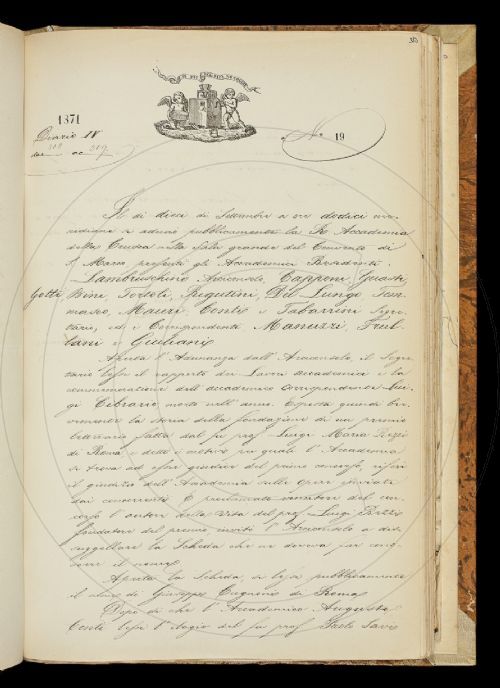 1871
Diario IV
dac    ac 317
N.° 19
Il dì dieci di Settembre a ore dodici me-
ridiane si adunò pubblicamente la R. Accademia
della Crusca nella sala grande del Convento di
S. Marco presenti gli Accademici Residenti
Lambruschini Arciconsolo, Capponi, Guasti,
Gotti Bini, Tortoli, Rigutini, Del Lungo, Tom-
maseo, Mauri, Conti e Tabarrini Segre-
tario, ed i Corrispondenti Manuzzi, Friul-
lani e Giuliani
Aperta l'Adunanza dall'Arciconsolo, il Segre-
tario lesse il rapporto dei Lavori accademici e la
commemorazione dell'accademico corrispondente Lui-
gi Cibrario morto nell'anno. Esposta quindi bre-
vemente la storia della fondazione di un premio
letterario fatta dal fu prof. Luigi Maria Rezzi
di Roma, e detto i criteri coi quali l'Accademia
si trova ad esser giudice del primo concorso, riferì
il giudizio dell'Accademia sulle opere inviate
dai concorrenti. E proclamato vincitore del con-
corso l'autore della Vita del prof. Luigi Rezzi
fondatore del premio invitò l'Arciconsolo a dis-
suggellare la Scheda che ne doveva far cono-
scere il nome.
Aperta la Scheda, si lesse pubblicamente
il nome di Giuseppe Cugnoni di Roma
Dopo di che l'Accademico Augusto
Conti lesse l'elogio del fu prof. Paolo Savi